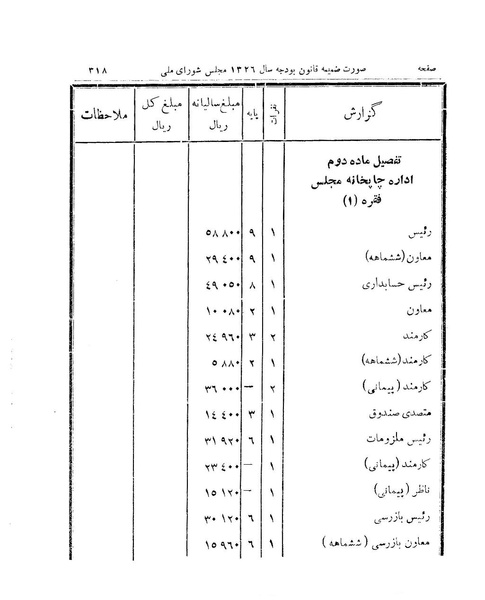 صفحه صورت ضمیمه قانون بودجه سال ۱۳۲۶ مجلس شورای ملی ۳۱۸
گزارش نفرات پایه مبلغ سالیانه ریال مبلغ کل ریال ملاحظات
تفصیل ماده دوم
اداره چاپخانه مجلس
فقره (۱)
رئیس ۱ ۹ ۵۸ ۸۰۰
معاون (ششماهه) ۱ ۹ ۲۹ ٤۰۰
رئیس حسابداری ۱ ۸ ٤۹ ۰۵۰
معاون ۱ ۲ ۱۰ ۰۸۰
کارمند ۲ ۳ ۲٤ ۹٦۰
کارمند (ششماهه) ۱ ۲ ۵ ۸۸۰
کارمند (پیمانی) ۲ — ۳٦ ۰۰۰
متصدی صندوق ۱ ۳ ۱٤ ٤۰۰
رئیس ملزومات ۱ ٦ ۳۱ ۹۲۰
کارمند (پیمانی) ۱ — ۲۳ ٤۰۰
ناظر (پیمانی) ۱ — ۱۵ ۱۲۰
رئیس بازرسی ۱ ٦ ۳۰ ۱۲۰
معاون بازرسی (ششماهه) ۱ ٦ ۱۵ ۹٦۰